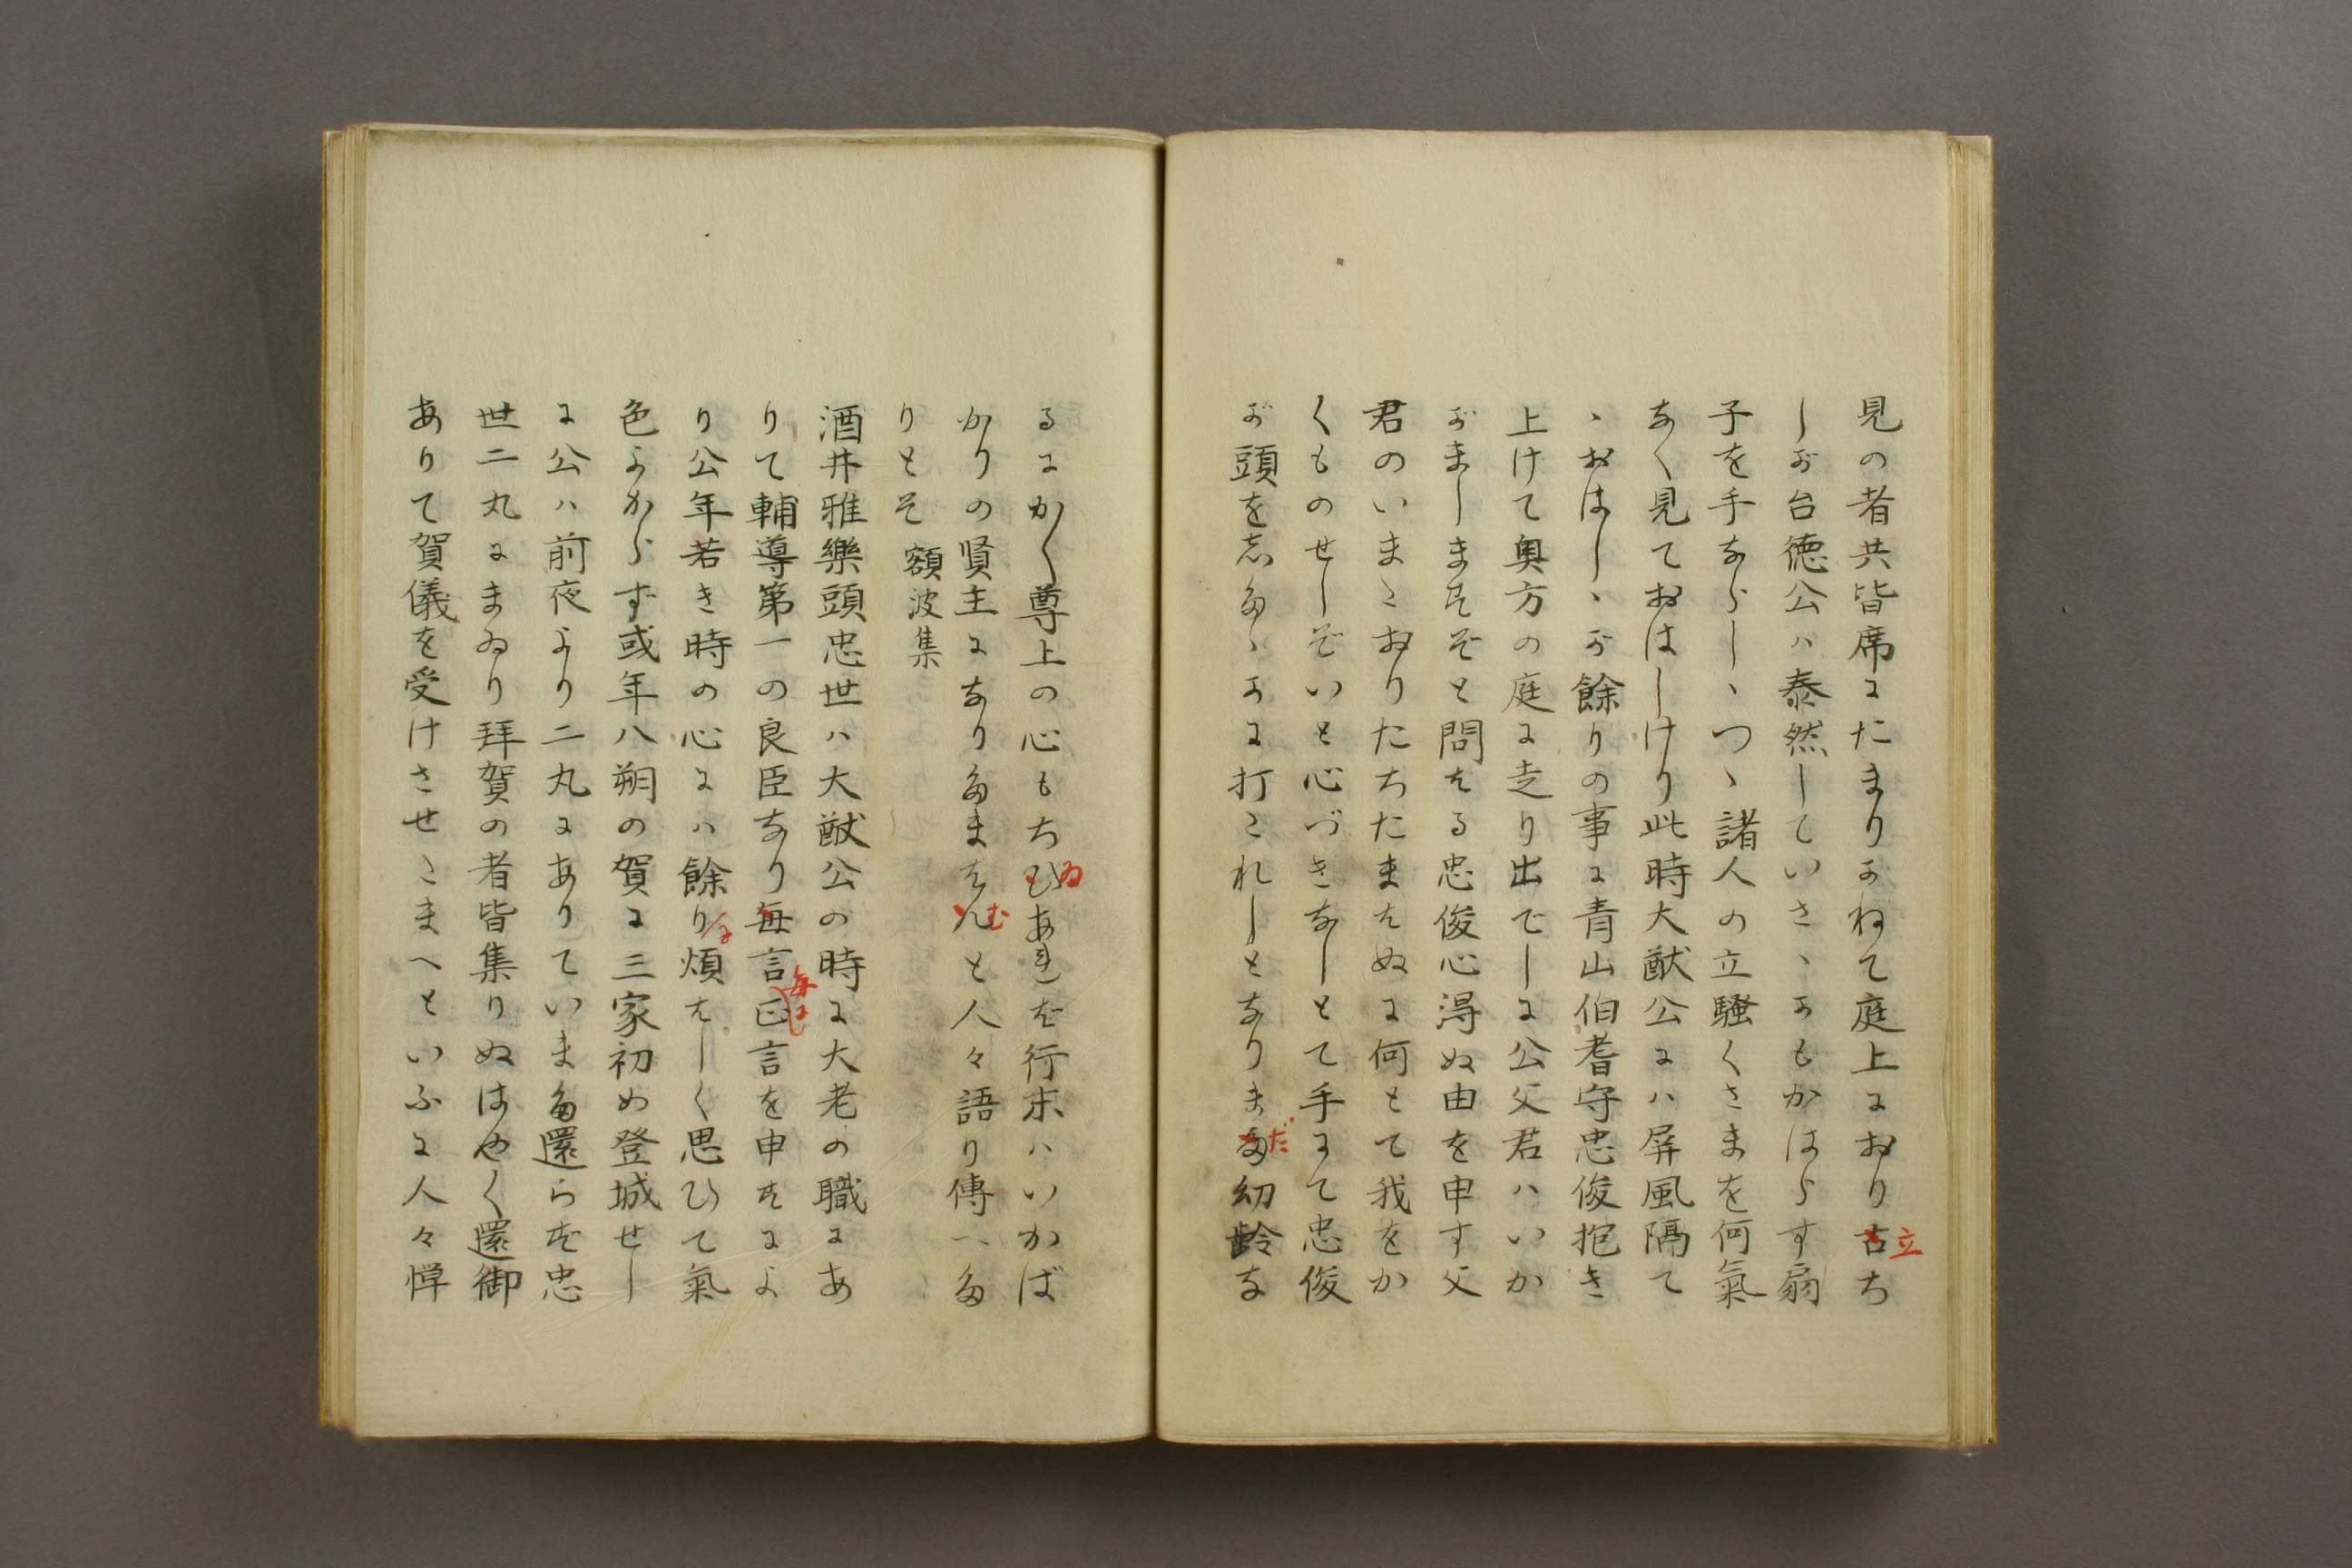 見の者共皆席にたまりかねて庭上におり古立ち
しが台徳公ハ泰然していさゝかもかはらす扇
子を手ならしゝつゝ諸人の立騒くさまを何氣
なく見ておはしけり此時大猷公にハ屏風隔て
ゝおはしゝが餘りの事に青山伯耆守忠俊抱き
上けて奥方の庭に走り出でしに公父君ハいか
がましますぞと問はる忠俊心得ぬ由を申す父
君のいまだおりたちたまはぬに何とて我をか
くものせしぞいと心づきなしとて手にて忠俊
が頭を志たゝかに打これしとなりまただ幼齢な
るにかく尊上の心もちひゐあれば行末ハいかば
かりの賢主になりたまはんむと人々語り傳へた
りとそ 額波集
酒井雅樂頭忠世ハ大猷公の時に大老の職にあ
りて輔導第一の良臣なり毎言毎に正言を申はによ
り公年若き時の心にハ餘りに煩はしく思ひて氣
色よからず或年八朔の賀に三家初め登城せし
に公ハ前夜より二丸にありていまた還らず忠
世二丸にまゐり拜賀の者皆集りぬはやく還御
ありて賀儀を受けさせたまへといふに人々憚